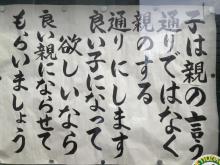 子は親の言う
通りではなく
親のする
通りにします
良い子になって
欲しいなら
良い親にならせて
もらいましょう